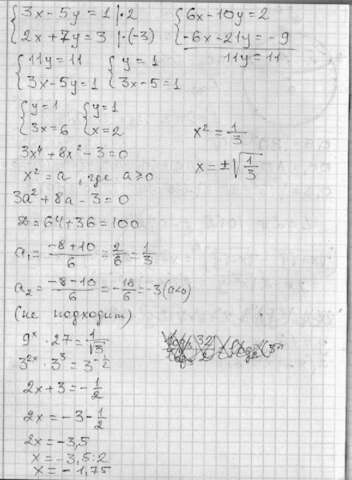 {3x - 5y = 1 |·2
{2x + 7y = 3 |·(-3)
{6x - 10y = 2
-6x - 21y = -9
11y = 11
{11y = 11 {y = 1
{3x - 5y = 1 {3x - 5 = 1
{y = 1 {y = 1
{3x = 6 {x = 2
3x⁴ + 8x² - 3 = 0
x² = a, где a ⩾ 0
3a² + 8a - 3 = 0
D = 64 + 36 = 100
a₁ = (-8+10)/6 = 2/6 = 1/3
a₂ = (-8-10)/6 = -18/6 = -3 (a<0)
(не подходит)
x² = 1/3
x = ±√(1/3)
9ˣ · 27 = 1/√3
3²ˣ · 3³ = 3^(-1/2)
2x + 3 = -1/2
2x = -3 - 1/2
2x = -3,5
x = -3,5 : 2
x = -1,75